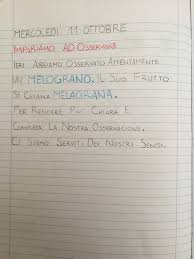 MERCOLEDÌ 11 OTTOBRE
IMPARIAMO AD OSSERVARE
IERI ABBIAMO OSSERVATO ATTENTAMENTE
UN MELOGRANO. IL SUO FRUTTO
SI CHIAMA MELAGRANA.
PER RENDERE PIÙ CHIARA E
COMPLETA LA NOSTRA OSSERVAZIONE
CI SIAMO SERVITI DEI NOSTRI SENSI.